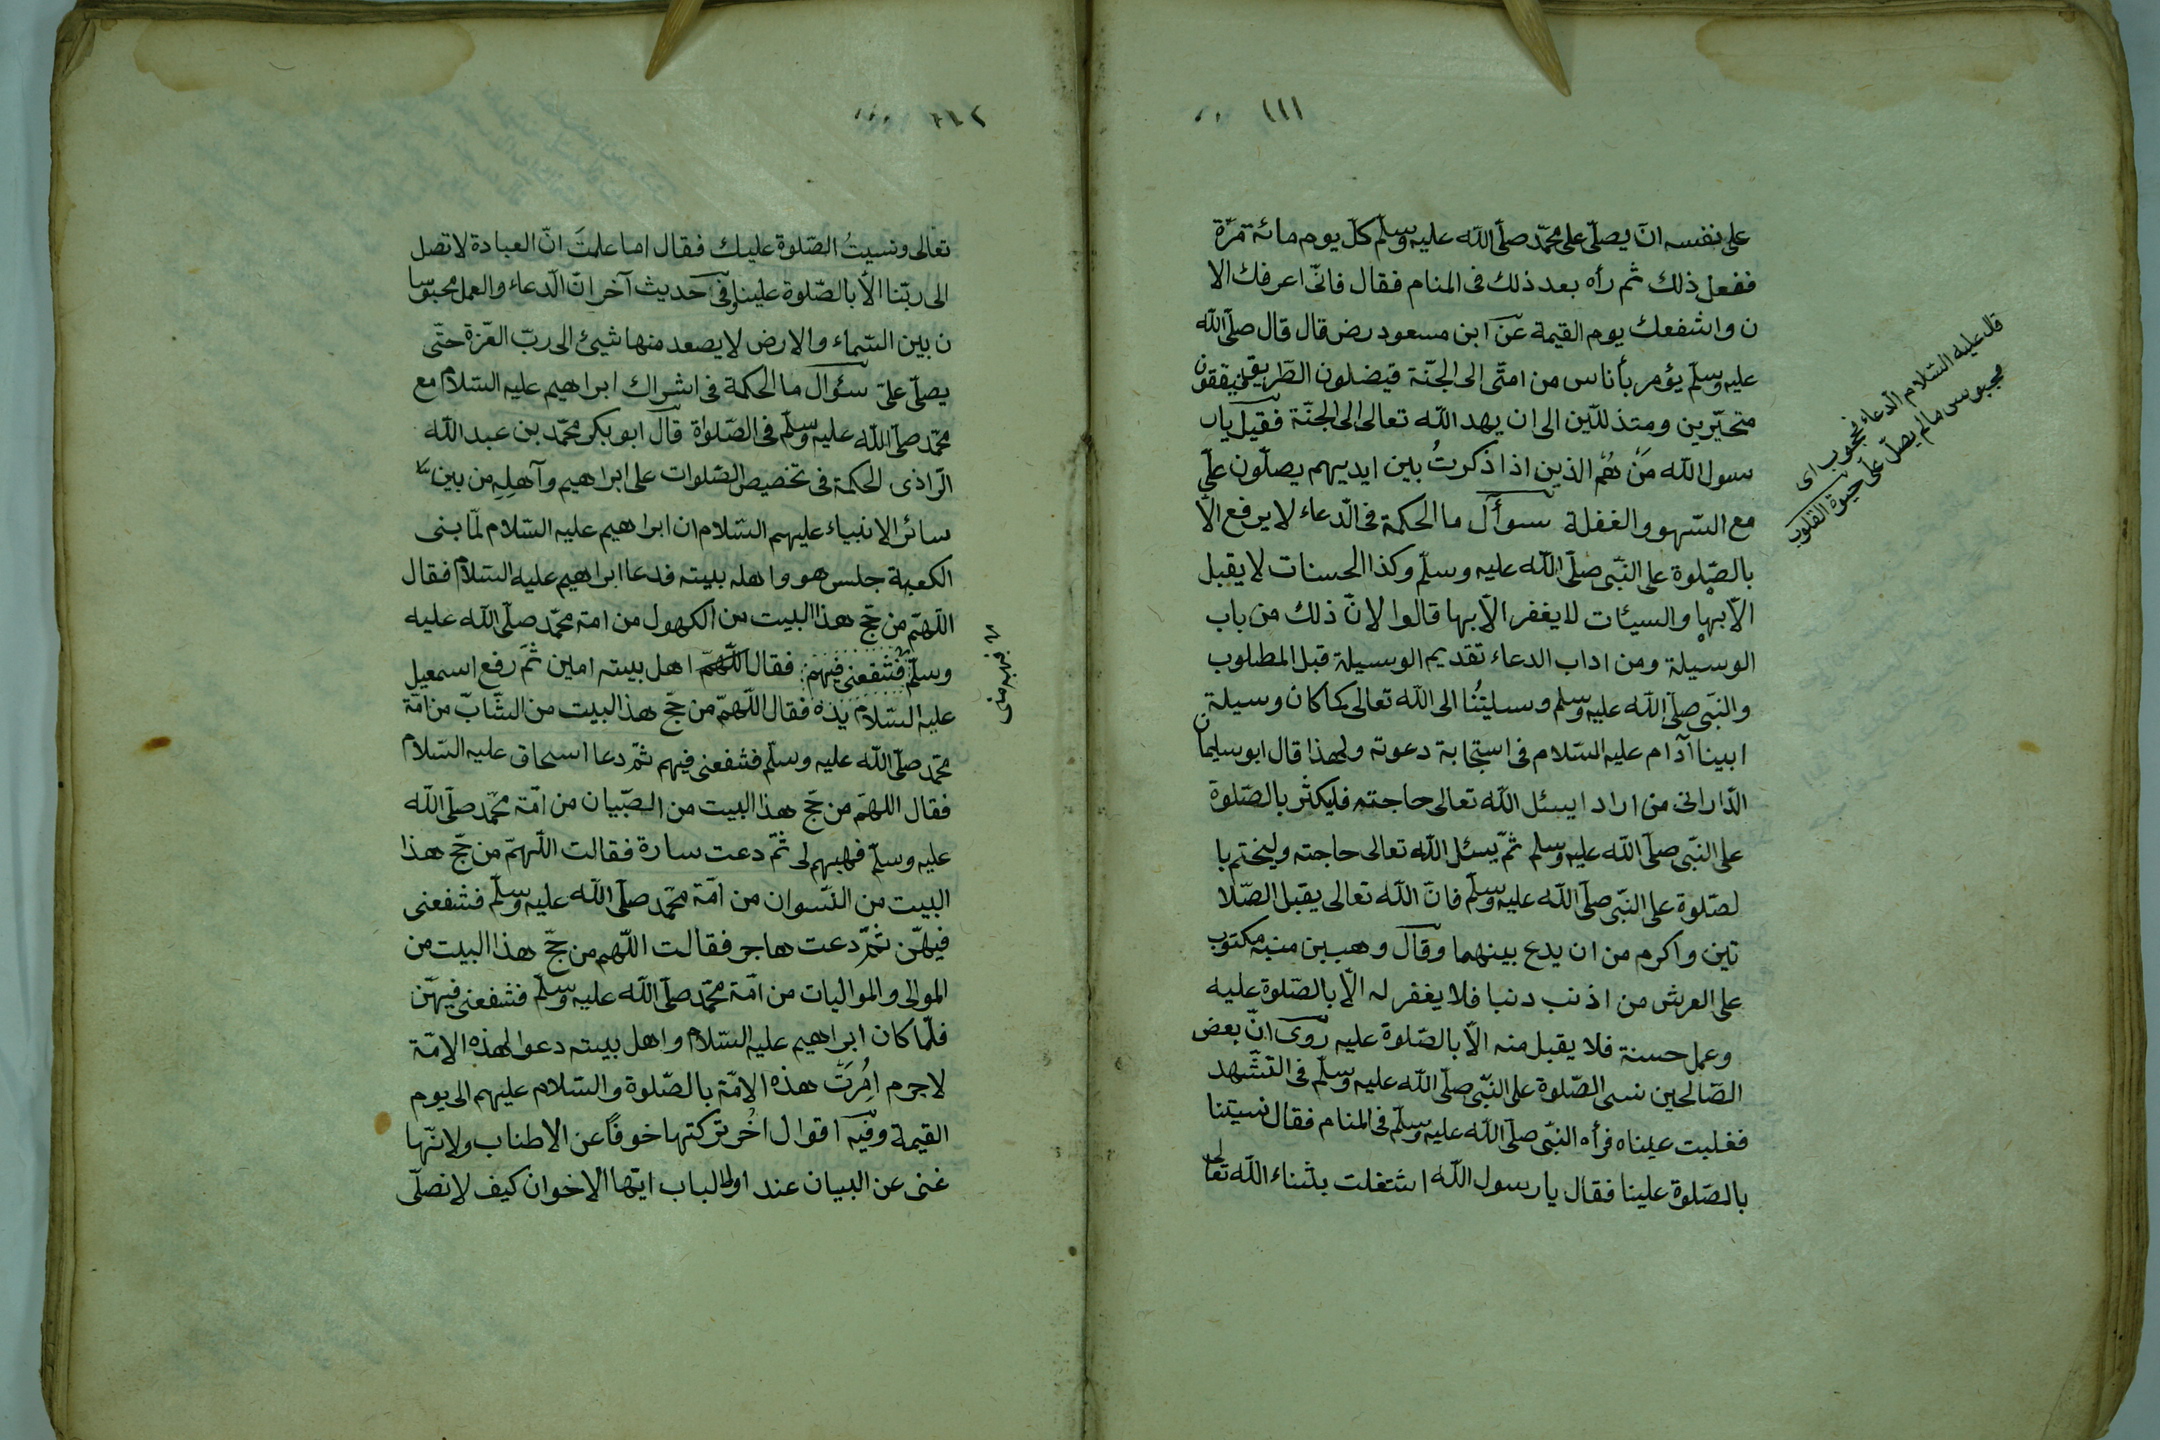 ١١١
على نفسه ان يصلّى على محمّد صلّى اللّه عليه وسلّم كلّ يوم مائة مرّة
ففعل ذلك ثم رأه بعد ذلك فى المنام فقال فانّى اعرفك الا
ن واشفعك يوم القيمة عن ابن مسعود رض قال قال صلّى اللّه
عليه وسلّم يؤمر بأناس من امتّى الى الجنّة فيضلون الطّريق
متحيّرين ومتذللّين الى ان يهد اللّه تعالى الى الجنّة فقيل يار
سول اللّه مَنْ هُم الذين اذا ذكرتُ بين ايديهم يصلّون علّى
مع السّهو والغفلة سوأل ما الحكمة فى الدّعاء لا يرفع الّا
بالصّلوة على النّبى صلّى اللّه عليه وسلّم وكذا الحسنات لا يقبل
الّا بها والسيئات لا يغفر الّا بها قالوا لانّ ذلك من باب
الوسيلة ومن اداب الدعاء تقديم الوسيلة قبل المطلوب
والنبى صلّى اللّه عليه وسلم وسيلتُنا الى اللّه تعالى كما كان وسيلة
ابينا آدام عليه السّلام فى استجابة دعوته ولهذا قال ابو سليمان
الدّارانى من اراد ايسئل اللّه تعالى حاجته فليكثر بالصّلوة
على النّبى صلّى اللّه عليه وسلم ثمّ يسئل اللّه تعالى حاجته وليختم با
لصّلوة على النّبى صلّى اللّه عليه وسلّم فانّ اللّه تعالى يقبل الصّلا
تين واكرم من ان يدع بينهما وقال وهب بن منبه مكتوب
على العرش من اذنب دنبا فلا يغفر له الّا بالصّلوة عليه
وعمل حسنة فلا يقبل منه الّا بالصّلوة عليه روى انّ بعض
الصّالحين نسى الصّلوة على النّبى صلّى اللّه عليه وسلّم فى التّشهد
فغلبت عيناه فرأه النبّى صلّى اللّه عليه وسلّم فى المنام فقال نسيتنا
بالصّلوة علينا فقال يا رسول اللّه اشتغلت بثناء اللّه تعالى
قال عليه السّلام الدعاء محجوب اى
محبوس ما لم يصلّ علىّ حيوة القلوب
تعالى ونسيتُ الصّلوة عليك فقال اما علمتَ انّ العبادة لا تصل
الى ربّنا الّا بالصّلوة علينا وفى حديث آخر انّ الّدعاء والعمل محبوسا
ن بين السّماء والارض لا يصعد منها شيئ الى ربّ العّزة حتّى
يصلّى علىّ سئوال ما الحكمة فى اشراك ابراهيم عليه السّلام مع
محمّد صلّى اللّه عليه وسلّم فى الصّلواة قال ابو بكر محمّد بن عبد اللّه
الّراذى الحكمة فى تخصيص الصّلوات على ابراهيم وآهلِهِ من بين
سائر الانبياء عليهم السّلام ان ابراهيم عليه السّلام لمّا بنى
الكعبة جلس هو واهله ببيته فدعا ابراهيم عليه السّلام فقال
اللّهمّ من حجّ هذا البيت من الكهول من امة محمّد صلّى اللّه عليه
وسلّم فشفعنى فيهم فقال اللّهمّ اهل بيته امين ثمّ رفع اسمعيل
عليه السّلام يده فقال اللّهمّ من حجّ هذا البيت من الشّابّ من امّة
محمّد صلّى اللّه عليه وسلّم فشفعنى فيهم ثمّ دعا اسحاق عليه السّلام
فقال اللهمّ من حجّ هذا البيت من الصّبيان من امّة محمّد صلّى اللّه
عليه وسلّم فهبهم لى ثمّ دعت سارة فقالت اللّهمّ من حجّ هذا
البيت من النّسوان من امّة محمّد صلّى اللّه عليه وسلّم فشفعنى
فيهنّ ثمّ دعت هاجر فقالت اللّهم من حجّ هذا البيت من
الموالى والمواليات من امّة محمّد صلّى اللّه عليه وسلّم فشفعنى فيهنّ
فلمّا كان ابراهيم عليه السّلام واهل بيته دعوا لهذه الامّة
لاجرم اُمُرَتْ هذه الامّة بالصّلوة والسّلام عليهم الى يوم
القيمة وفيه اقوال اُخُر تركتها خوفًا عن الاطناب ولانّها
غنى عن البيان عند اولى الباب ايّها الاخوان كيف لا نصلّى